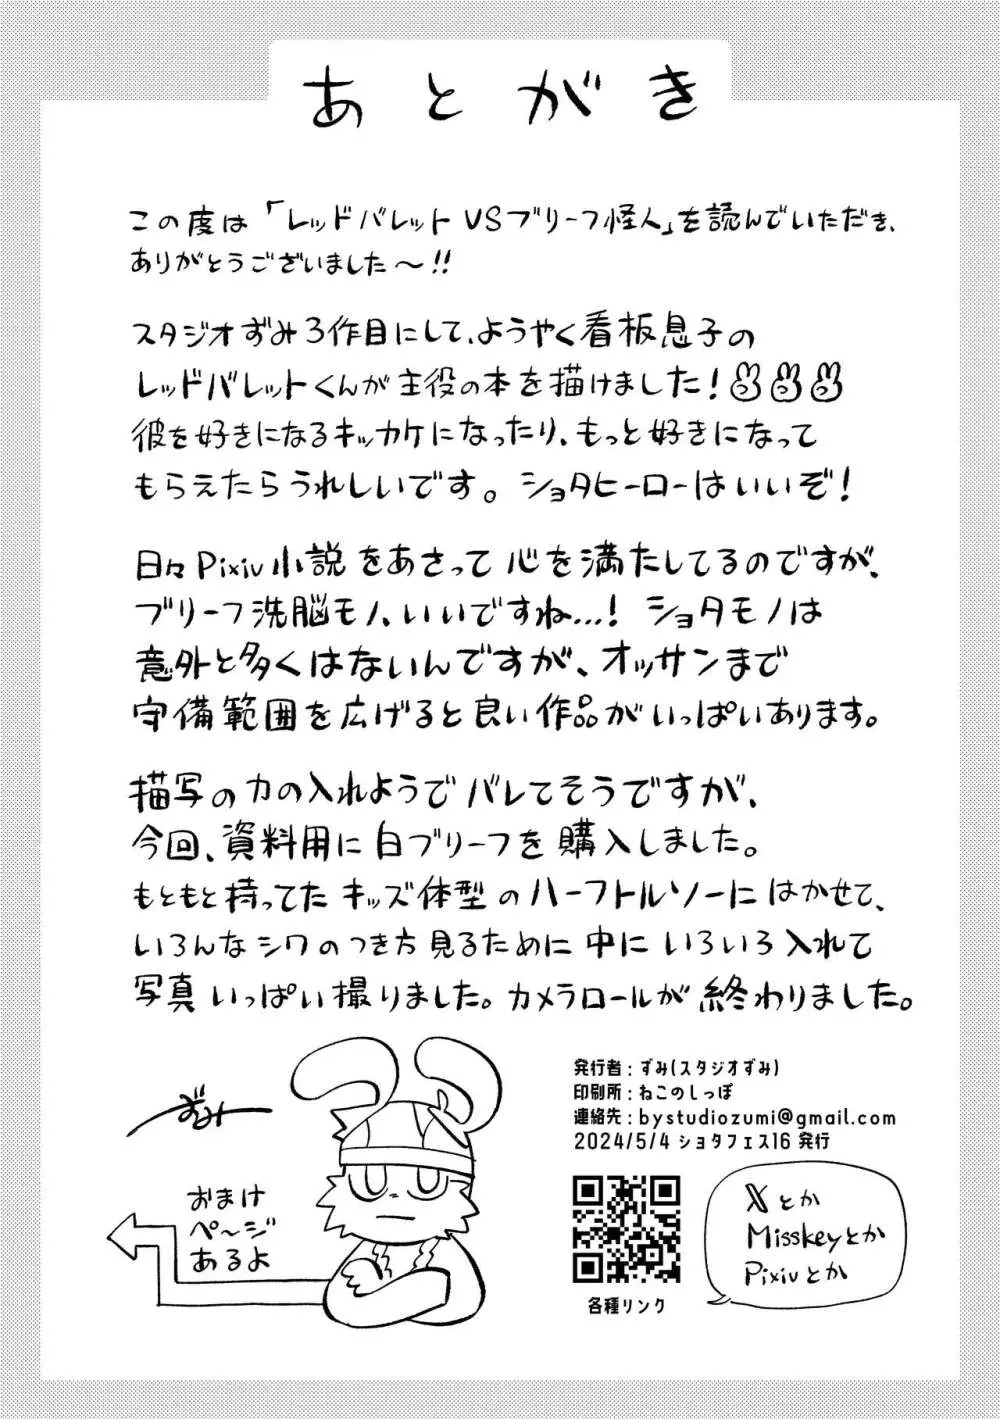 あとがき
この度は「レッドバレットVSブリーフ怪人」を読んでいただき、
ありがとうございました〜!!
スタジオずみ3作目にして、ようやく看板息子の
レッドバレットくんが主役の本を描けました!
彼を好きになるキッカケになったり、もっと好きになって
もらえたらうれしいです。ショタヒーローはいいぞ!
日々Pixiv小説をあさって心を満たしてるのですが、
ブリーフ洗脳モノ、いいですね...! ショタモノは
意外と多くはないんですが、オッサンまで
守備範囲を広げると良い作品がいっぱいあります。
描写の力の入れようでバレてそうですが、
今回、資料用に白ブリーフを購入しました。
もともと持ってたキッズ体型のハーフトルソーにはかせて、
いろんなシワのつき方見るために中にいろいろ入れて
写真いっぱい撮りました。カメラロールが終わりました。
ずみー
おまけ
ペ〜ジ
あるよ
発行者:ずみ(スタジオずみ)
印刷所:ねこのしっぽ
連絡先:bystudiozumi@gmail.com
2024/5/4 ショタフェス16 発行
各種リンク
Xとか
Misskeyとか
Pixivとか